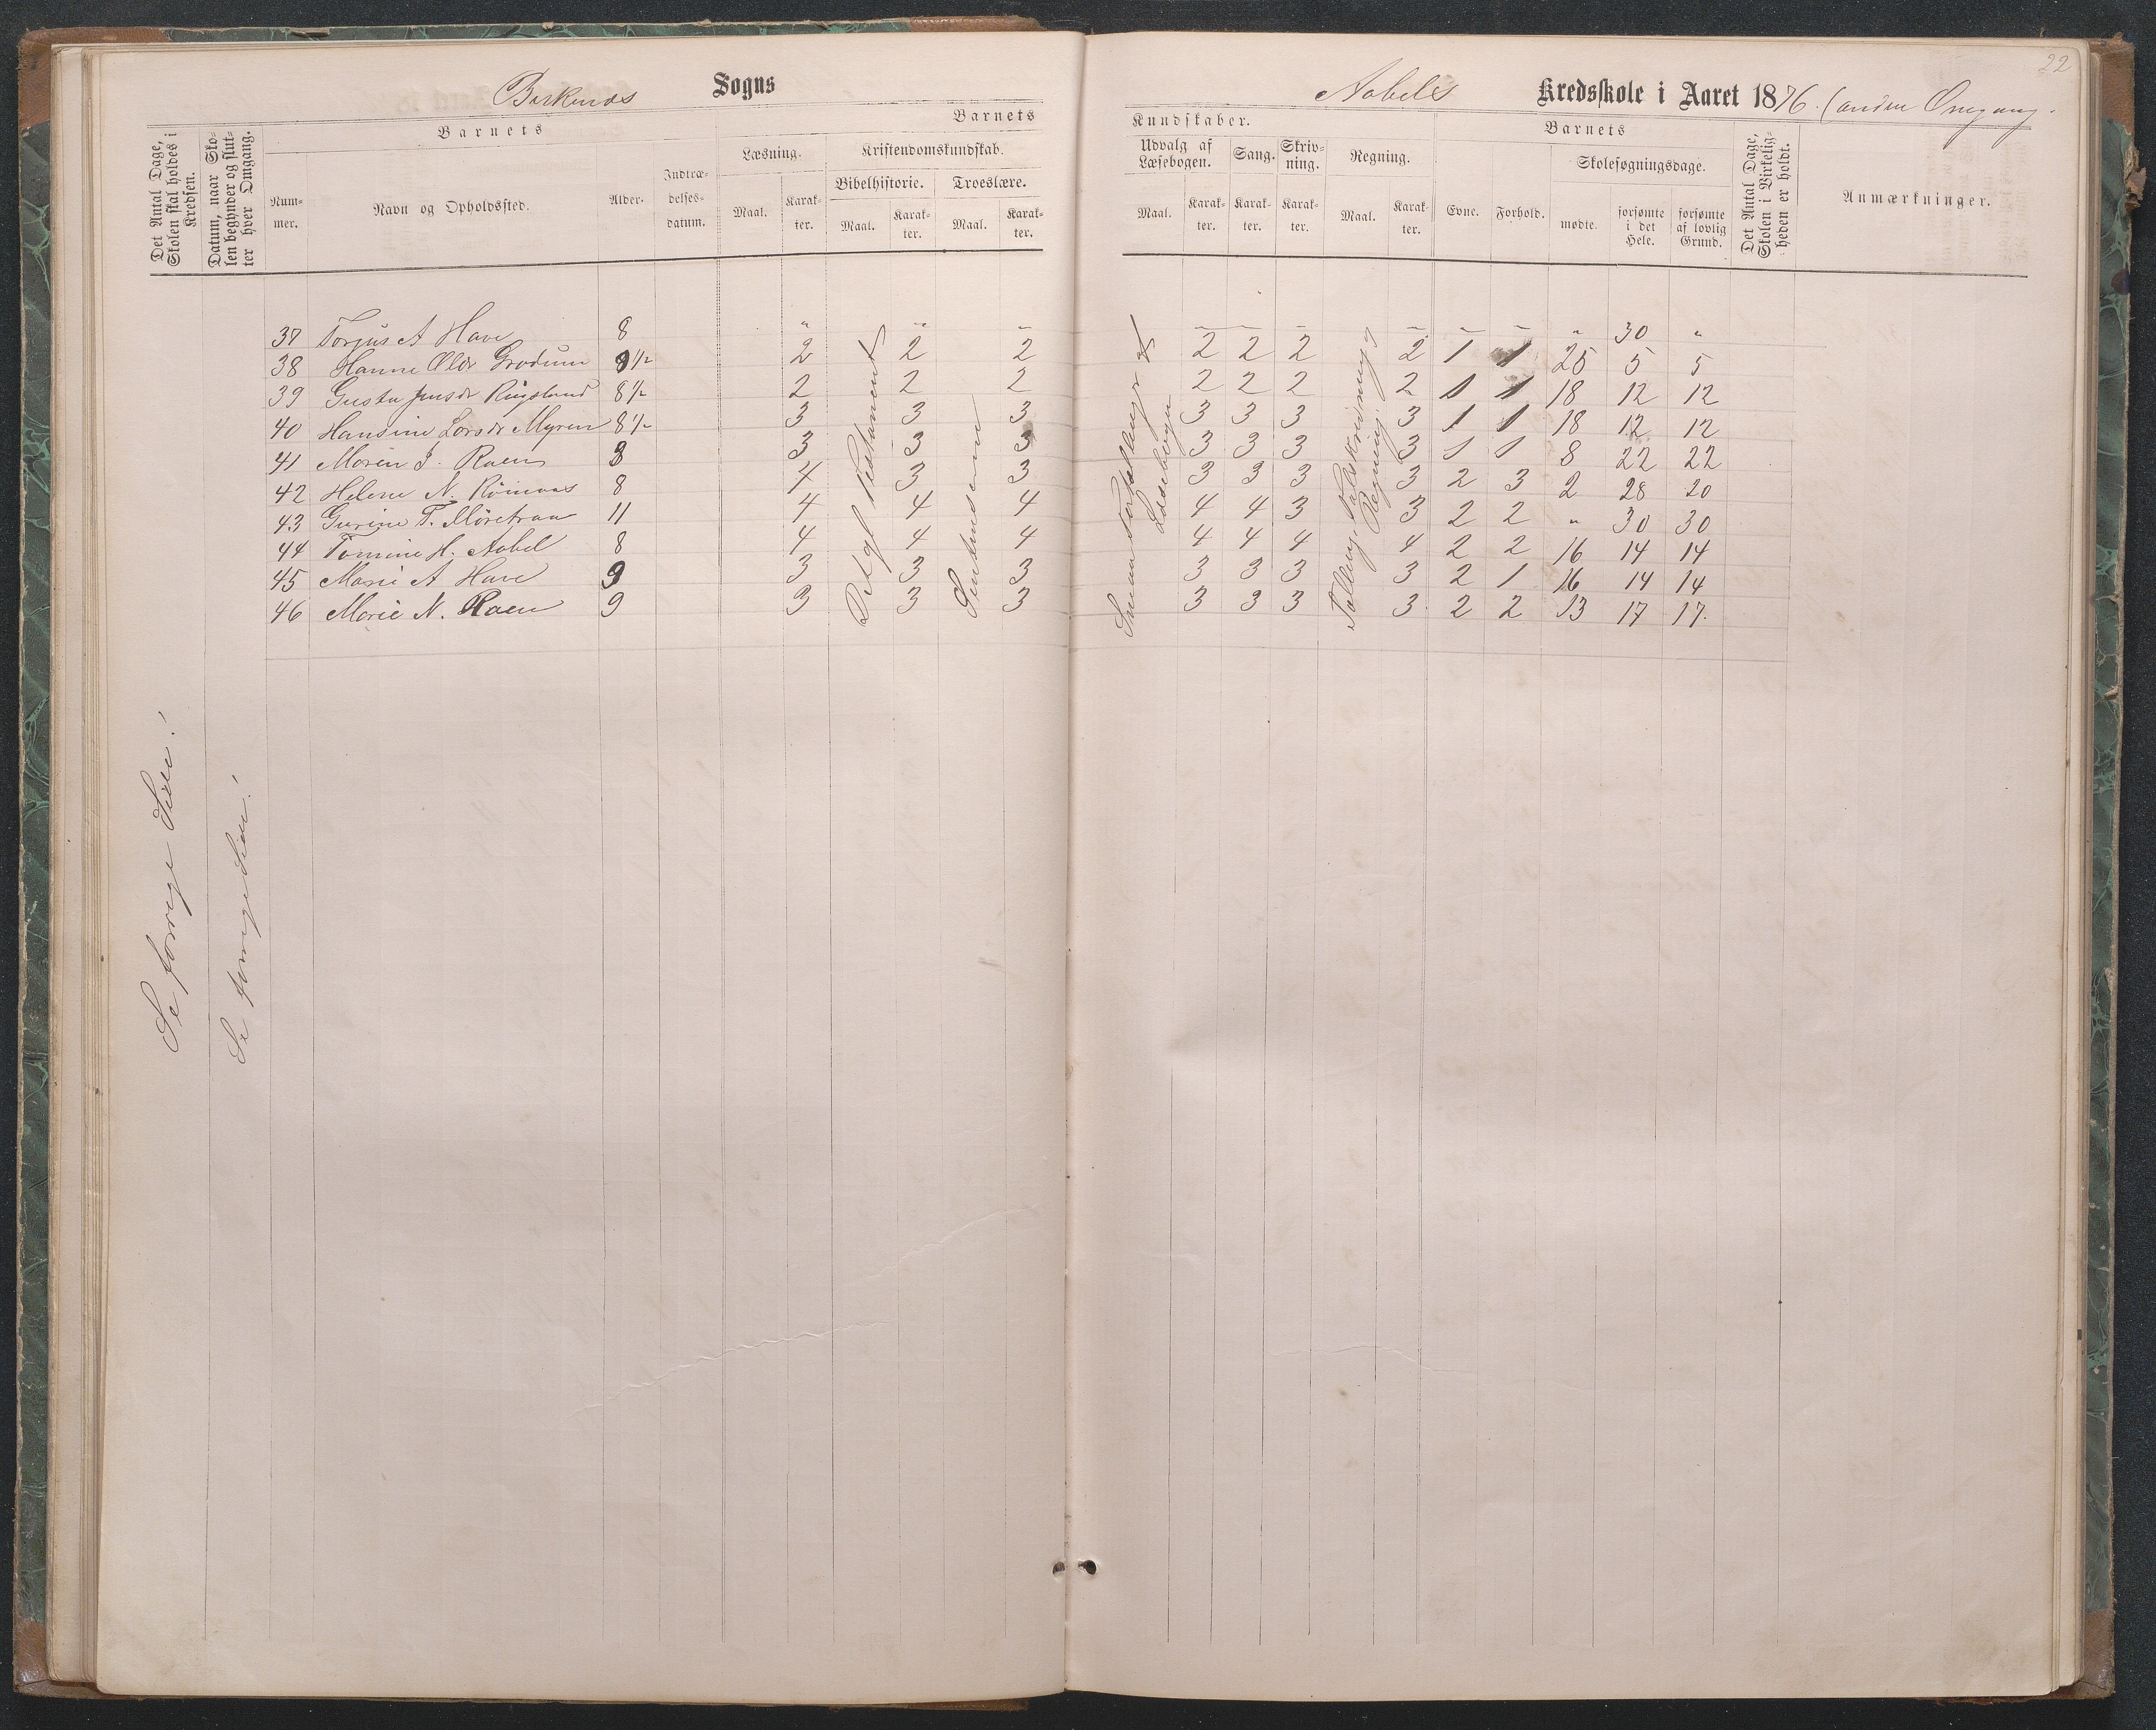 22
Birkenæs Sogns
Aabels Kredsskole i Aaret 1876. (anden Omgang.
Det Antal Dage, Skolen skal holdes i Kredsen.
Datum, naar Skolen begynder og slutter hver Omgang.
Barnets
Nummer.
Navn og Opholdssted.
Alder.
Indtrædelsesdatum.
Barnets
Læsning.
Maal.
Karakter.
Kristendomskundskab.
Bibelhistorie.
Maal.
Karakter.
Troeslære.
Maal.
Karakter.
Kundskaber.
Udvalg af Læsebogen.
Maal.
Karakter.
Sang.
Karakter.
Skrivning.
Karakter.
Regning.
Maal.
Karakter.
Barnets
Evne.
Forhold.
Skolesøgningsdage.
mødte.
forsømte i det Hele.
forsømte af lovlig Grund.
Det Antal Dage, Skolen i Virkeligheden er holdt.
Anmærkninger.
37 Torjus A Have 8 " " – – – – – – – " 30 "
38 Hanne Olsdr Grodum 9 1/2 2 2 2 2 2 2 2 1 1 25 5 5
39 Gusta Jensdr Ringsland 8 1/2 2 2 2 2 2 2 2 1 1 18 12 12
40 Hansine Larsdr Myren 8 1/2 3 3 3 3 3 3 3 1 1 18 12 12
41 Maren J. Raen 8 3 3 3 3 3 3 3 1 1 8 22 22
42 Helene N. 8 4 3 3 3 3 3 3 2 3 2 28 20
43 Gurine T. Møretraa 11 4 4 4 4 4 3 3 2 2 " 30 30
44 Tomine H. Aabel 8 4 4 4 4 4 4 4 2 2 16 14 14
45 Marie A Have 9 3 3 3 3 3 3 3 2 1 16 14 14
46 Marie N. Raen 9 3 3 3 3 3 3 3 2 2 13 17 17.
Det gl Testament
Smaa Fortællinger af Læsebogen
Tælling, Talskrivning og Regning.
Se forrige Side!
Se forrige Side!